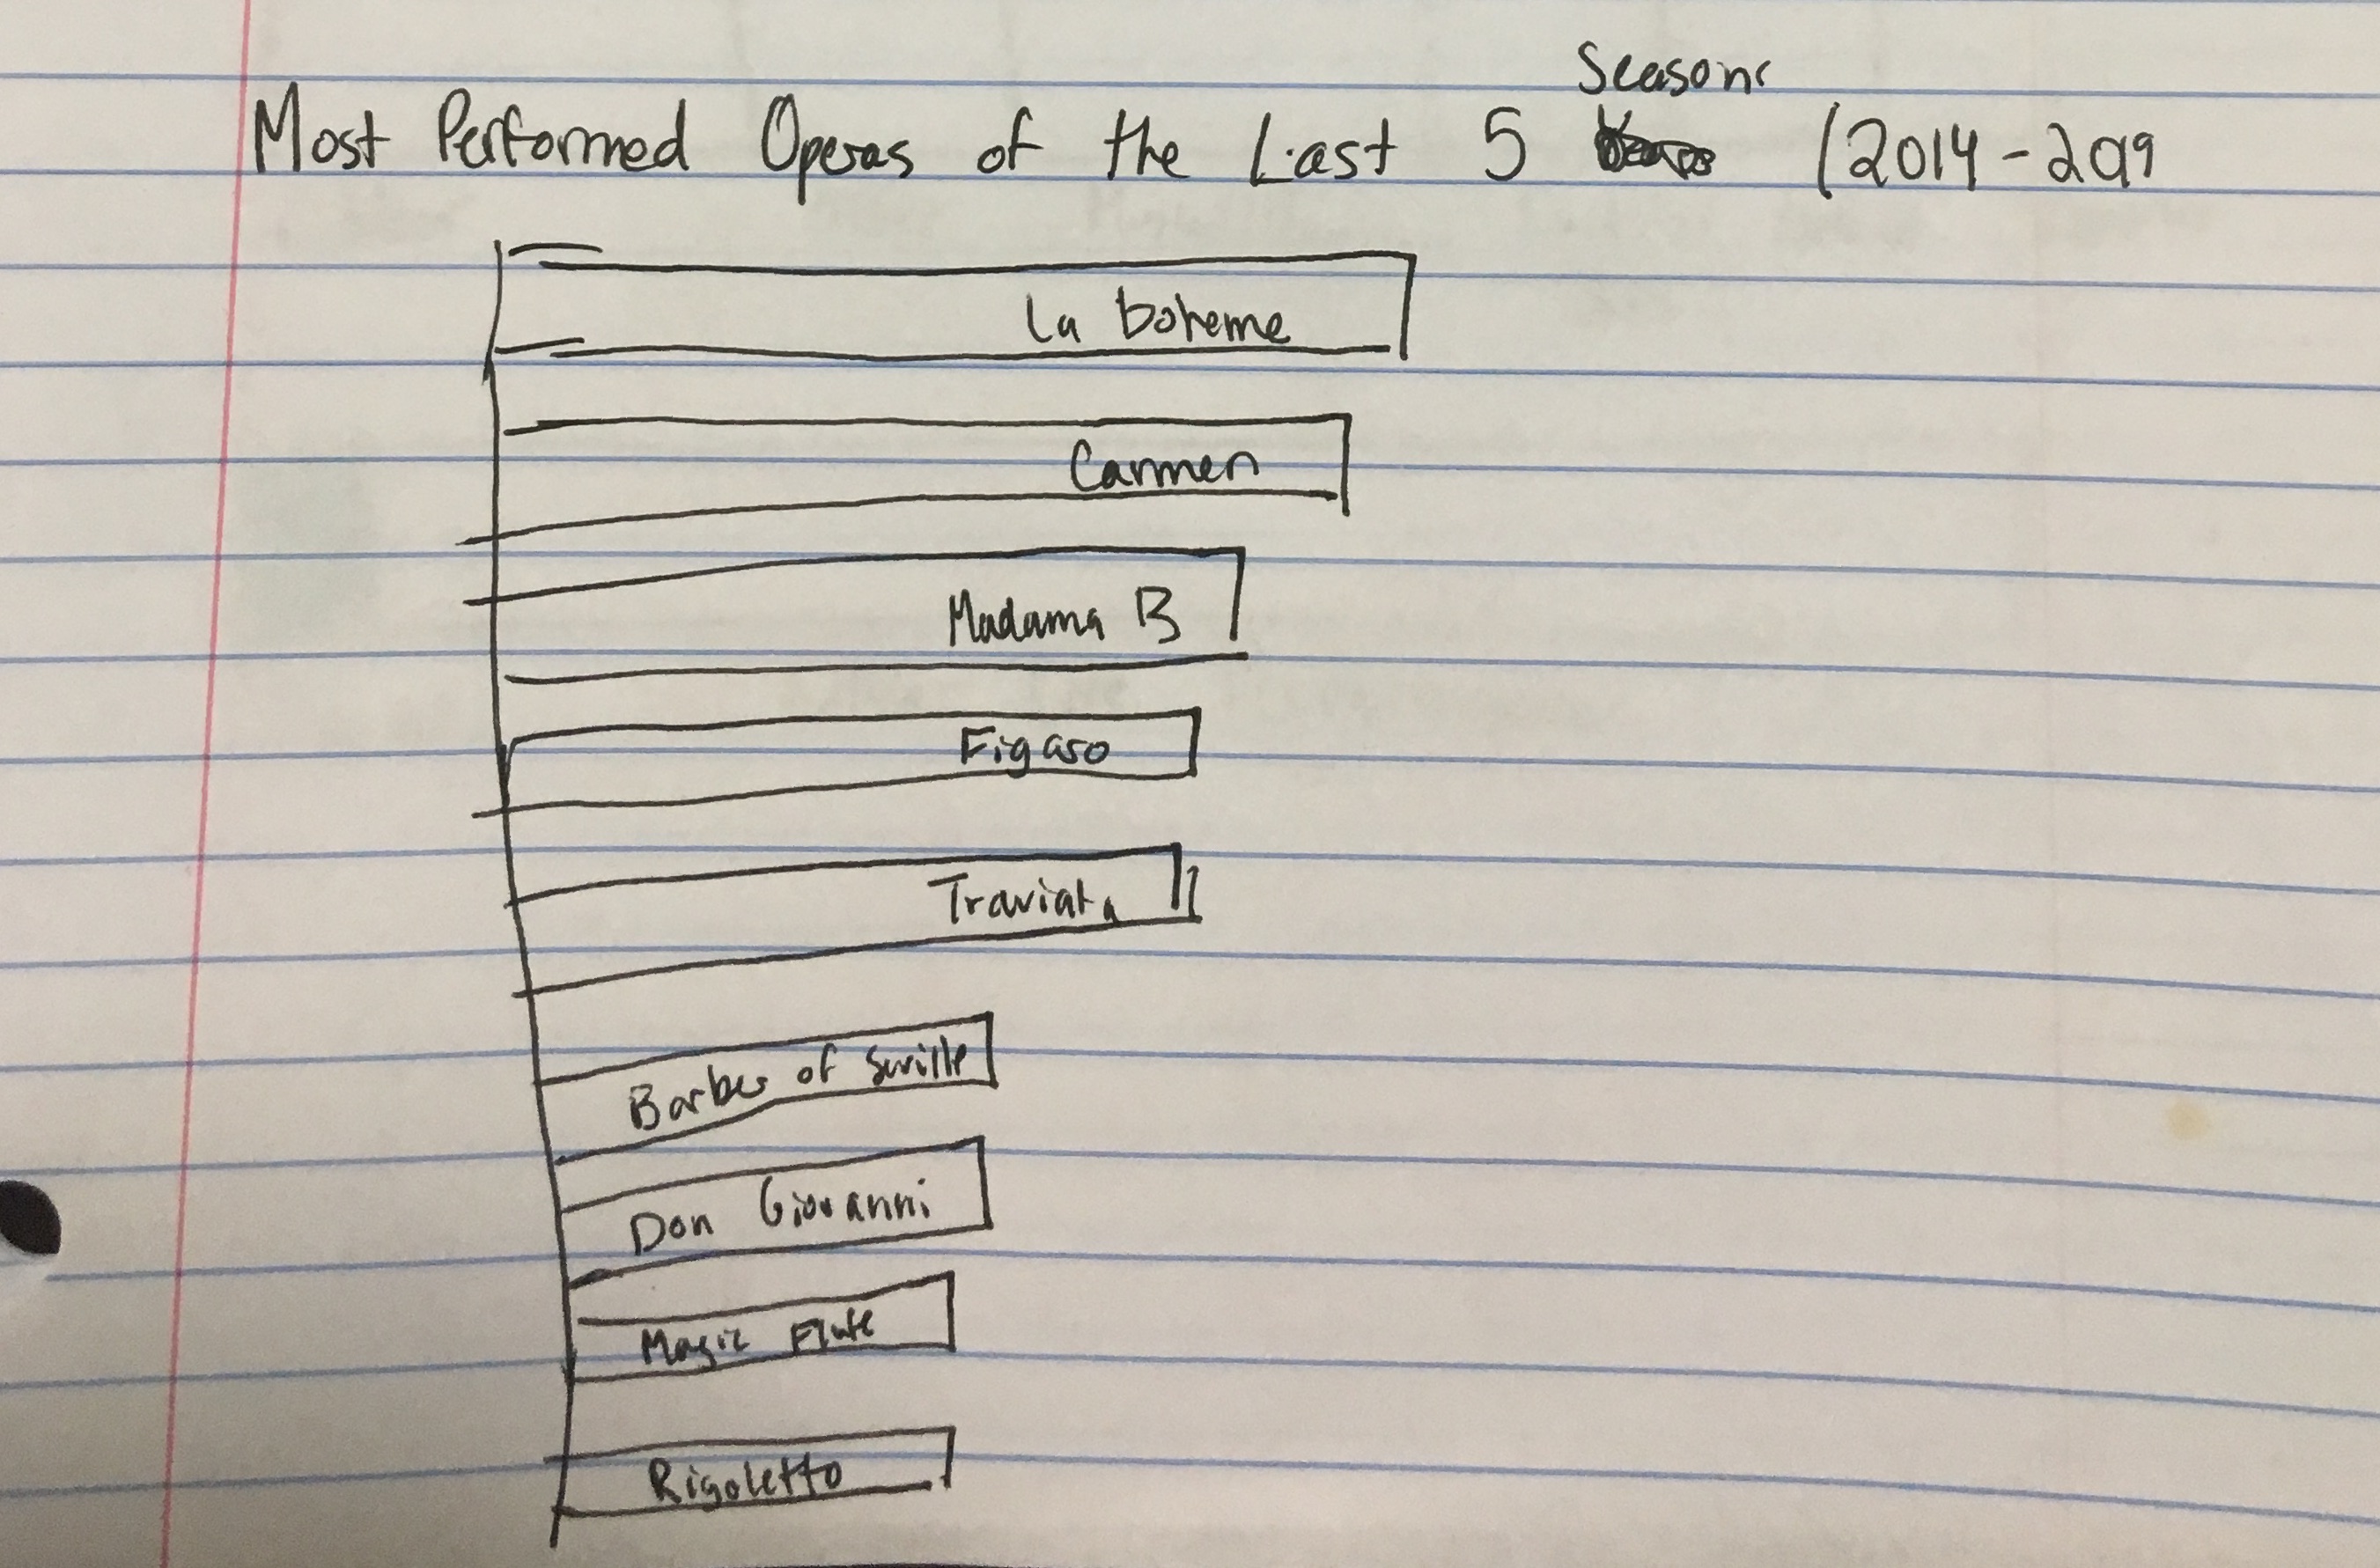 Seasons
Most Performed Operas of the Last 5 (2014-2019
La boheme
Carmen
Madama B
Figaro
Traviata
Barber of Seville
Don Giovanni
Magic Flute
Rigoletto